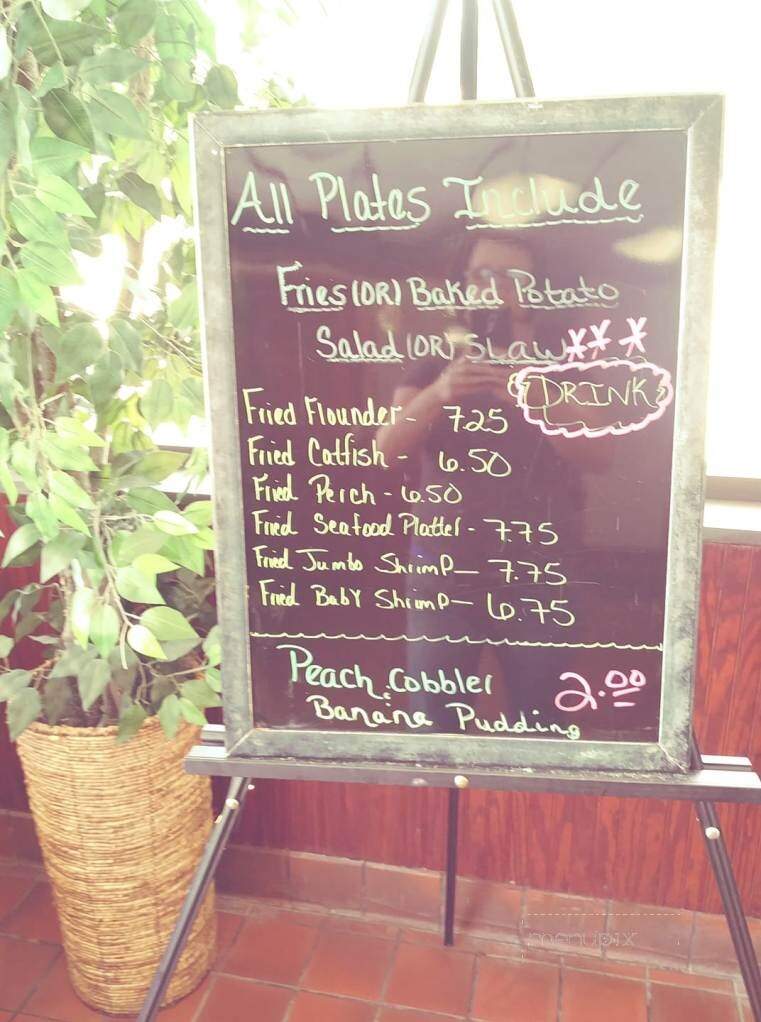 All Plates Include
Fries (OR) Baked Potato
Salad (OR) SLAW***
DRINK
Fried Flounder - 7.25
Fried Catfish - 6.50
Fried Perch - 6.50
Fried Seafood Platter - 7.75
Fried Jumbo Shrimp - 7.75
Fried Baby Shrimp - 6.75
Peach Cobbler 2.00
Banana Pudding
menupix